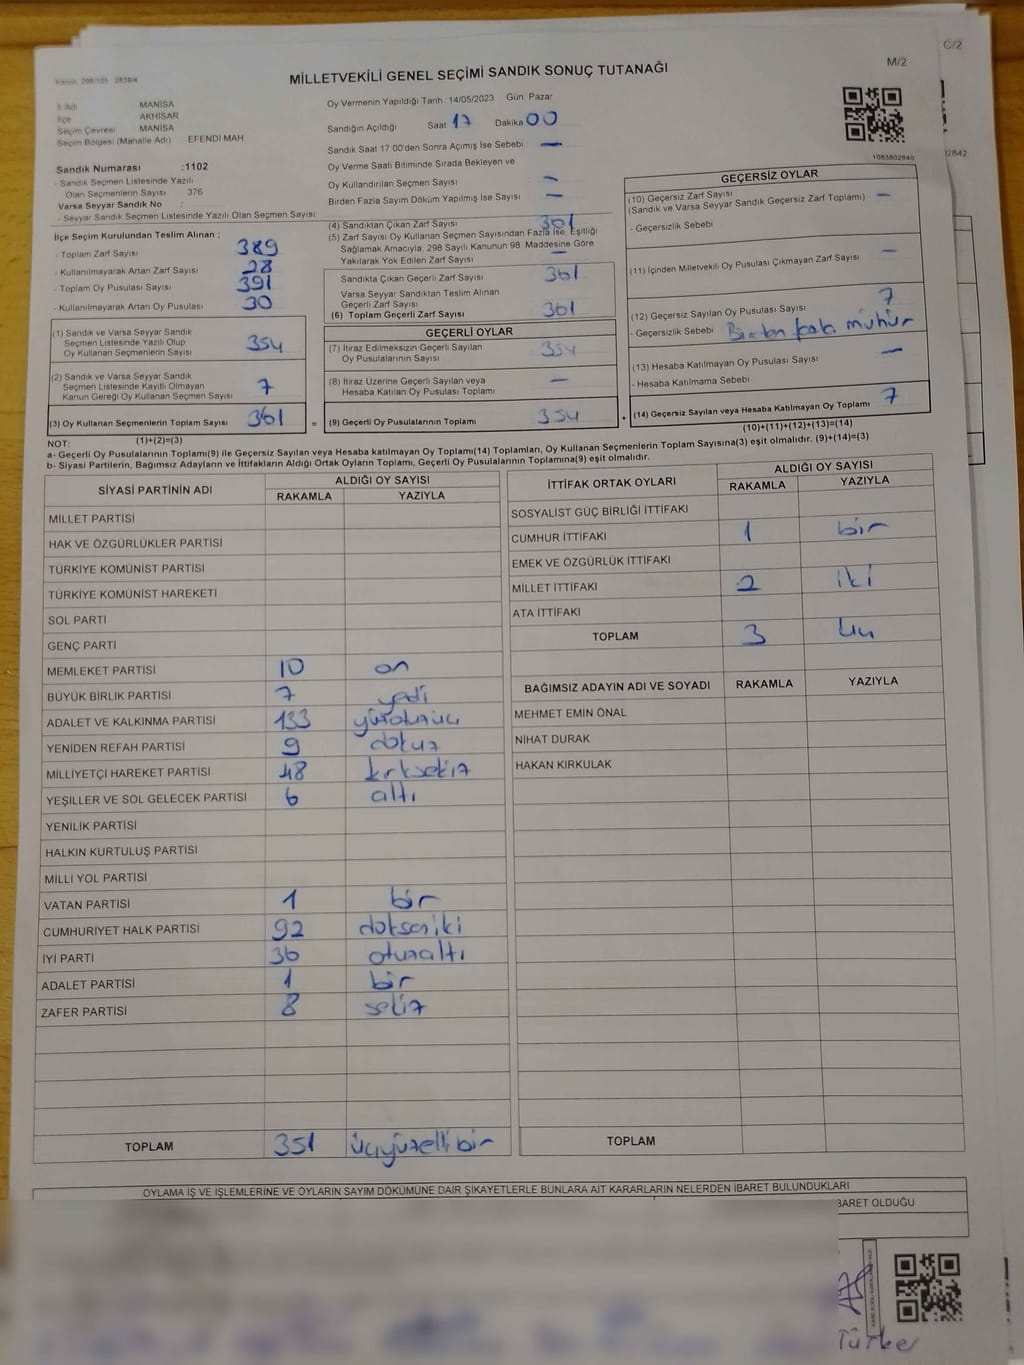 C/2
M/2
MİLLETVEKİLİ GENEL SEÇİMİ SANDIK SONUÇ TUTANAĞI
İl Adı MANİSA
İlçe AKHİSAR
Seçim Çevresi MANİSA
Seçim Bölgesi (Mahalle Adı) EFENDİ MAH
Sandık Numarası :1102
- Sandık Seçmen Listesinde Yazılı
Olan Seçmenlerin Sayısı : 376
Varsa Seyyar Sandık No :
- Seyyar Sandık Seçmen Listesinde Yazılı Olan Seçmen Sayısı
Oy Vermenin Yapıldığı Tarih 14/05/2023 Gün Pazar
Sandığın Açıldığı Saat 17 Dakika 00
Sandık Saat 17 00'den Sonra Açımış İse Sebebi —
Oy Verme Saati Bitiminde Sırada Bekleyen ve
Oy Kullandırılan Seçmen Sayısı —
Birden Fazla Sayım Döküm Yapılmış İse Sayısı —
1083802840
İlçe Seçim Kurulundan Teslim Alınan ;
- Toplam Zarf Sayısı 389
- Kullanılmayarak Artan Zarf Sayısı 28
- Toplam Oy Pusulası Sayısı 391
- Kullanılmayarak Artan Oy Pusulası 30
(1) Sandık ve Varsa Seyyar Sandık
Seçmen Listesinde Yazılı Olup
Oy Kullanan Seçmenlerin Sayısı 354
(2) Sandık ve Varsa Seyyar Sandık
Seçmen Listelerinde Kayıtlı Olmayan
Kanun Gereği Oy Kullanan Seçmen Sayısı 7
(3) Oy Kullanan Seçmenlerin Toplam Sayısı 361 =
(1)+(2)=(3)
(4) Sandıktan Çıkan Zarf Sayısı 361
(5) Zarf Sayısı Oy Kullanan Seçmen Sayısından Fazla İse, Eşitliği
Sağlamak Amacıyla, 298 Sayılı Kanunun 98. Maddesine Göre
Yakılarak Yok Edilen Zarf Sayısı —
Sandıkta Çıkan Geçerli Zarf Sayısı 361
Varsa Seyyar Sandıktan Teslim Alınan
Geçerli Zarf Sayısı
(6) Toplam Geçerli Zarf Sayısı 361
GEÇERLİ OYLAR
(7) İtiraz Edilmeksizin Geçerli Sayılan
Oy Pusulalarının Sayısı 354
(8) İtiraz Üzerine Geçerli Sayılan veya
Hesaba Katılan Oy Pusulası Toplamı —
(9) Geçerli Oy Pusulalarının Toplamı 354 +
GEÇERSİZ OYLAR
(10) Geçersiz Zarf Sayısı
(Sandık ve Varsa Seyyar Sandık Geçersiz Zarf Toplamı) —
- Geçersizlik Sebebi
(11) İçinden Milletvekili Oy Pusulası Çıkmayan Zarf Sayısı —
(12) Geçersiz Sayılan Oy Pusulası Sayısı 7
- Geçersizlik Sebebi mühür
(13) Hesaba Katılmayan Oy Pusulası Sayısı —
- Hesaba Katılmama Sebebi
(14) Geçersiz Sayılan veya Hesaba Katılmayan Oy Toplamı 7
(10)+(11)+(12)+(13)=(14)
NOT:
a- Geçerli Oy Pusulalarının Toplamı(9) ile Geçersiz Sayılan veya Hesaba katılmayan Oy Toplamı(14) Toplamları, Oy Kullanan Seçmenlerin Toplam Sayısına(3) eşit olmalıdır. (9)+(14)=(3)
b- Siyasi Partilerin, Bağımsız Adayların ve İttifakların Aldığı Ortak Oyların Toplamı, Geçerli Oy Pusulalarının Toplamına(9) eşit olmalıdır.
SİYASİ PARTİNİN ADI ALDIĞI OY SAYISI
RAKAMLA YAZIYLA
MİLLET PARTİSİ
HAK VE ÖZGÜRLÜKLER PARTİSİ
TÜRKİYE KOMÜNİST PARTİSİ
TÜRKİYE KOMÜNİST HAREKETİ
SOL PARTİ
GENÇ PARTİ
MEMLEKET PARTİSİ 10 on
BÜYÜK BİRLİK PARTİSİ 7 yedi
ADALET VE KALKINMA PARTİSİ 133
YENİDEN REFAH PARTİSİ 9 dokuz
MİLLİYETÇİ HAREKET PARTİSİ 48 kırksekiz
YEŞİLLER VE SOL GELECEK PARTİSİ 6 altı
YENİLİK PARTİSİ
HALKIN KURTULUŞ PARTİSİ
MİLLİ YOL PARTİSİ
VATAN PARTİSİ 1 bir
CUMHURİYET HALK PARTİSİ 92 doksaniki
İYİ PARTİ 36 otuzaltı
ADALET PARTİSİ 1 bir
ZAFER PARTİSİ 8 sekiz
TOPLAM 351 üçyüzellibir
İTTİFAK ORTAK OYLARI ALDIĞI OY SAYISI
RAKAMLA YAZIYLA
SOSYALİST GÜÇ BİRLİĞİ İTTİFAKI
CUMHUR İTTİFAKI 1 bir
EMEK VE ÖZGÜRLÜK İTTİFAKI
MİLLET İTTİFAKI 2 iki
ATA İTTİFAKI
TOPLAM 3 üç
BAĞIMSIZ ADAYIN ADI VE SOYADI RAKAMLA YAZIYLA
MEHMET EMİN ÖNAL
NİHAT DURAK
HAKAN KIRKULAK
TOPLAM
OYLAMA İŞ VE İŞLEMLERİNE VE OYLARIN SAYIM DÖKÜMÜNE DAİR ŞİKAYETLERLE BUNLARA AİT KARARLARIN NELERDEN İBARET BULUNDUKLARI
BARET OLDUĞU